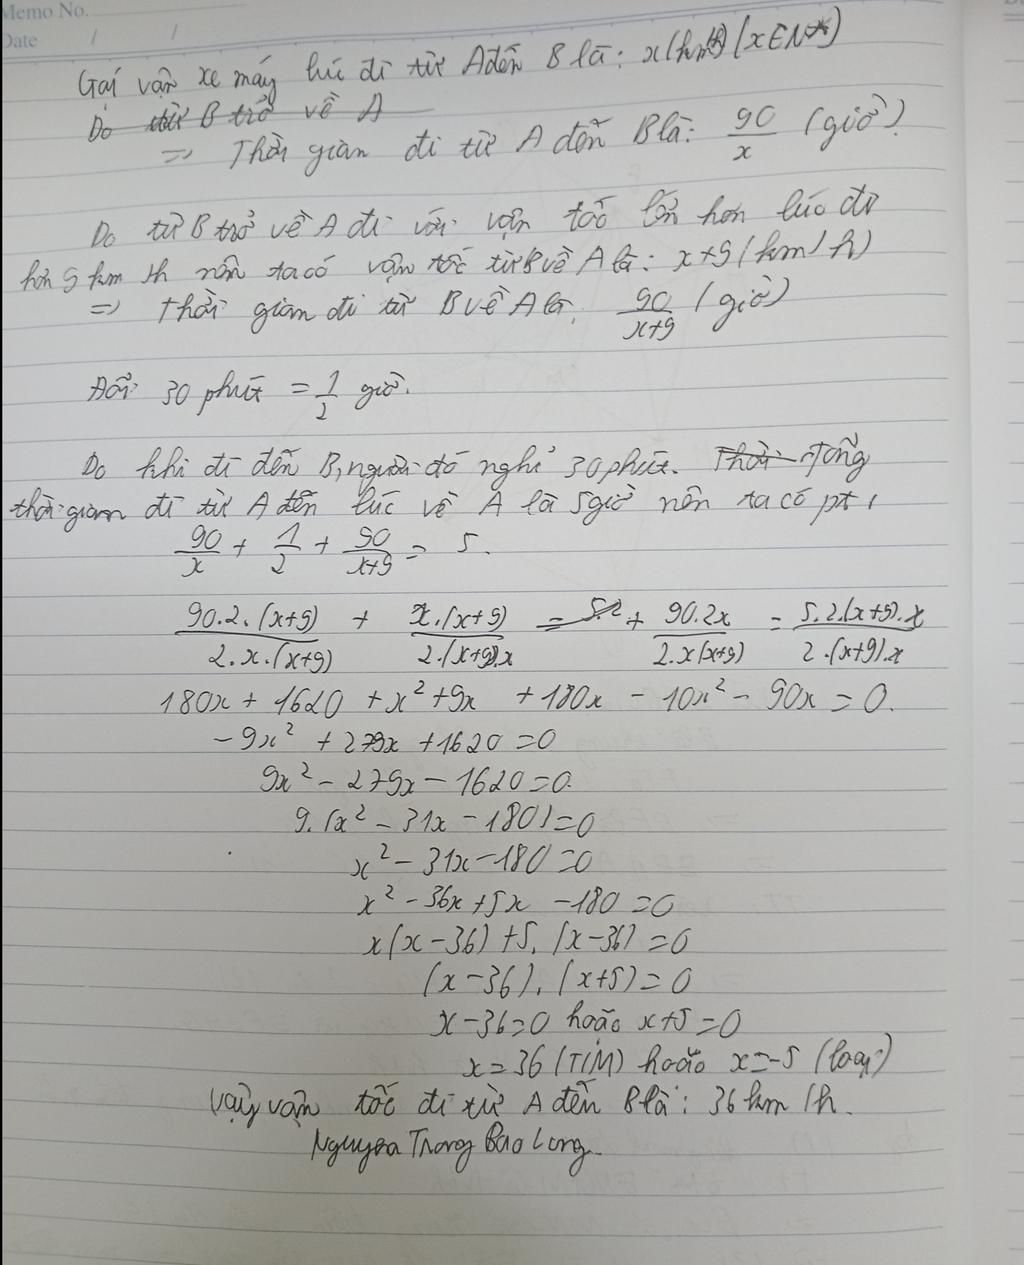 Memo No.
Date / /
Gọi vận xe máy lúc đi từ A đến B là: x(km/h) (x∈N*)
Do từ B trở về A
=> Thời gian đi từ A đến B là: 90/x (giờ)
Do từ B trở về A đi với vận tốc lớn hơn lúc đi
hơn 9 km/h nên ta có vận tốc từ B về A là: x+9 (km/h)
=> Thời gian đi từ B về A là: 90/(x+9) (giờ)
Đổi: 30 phút = 1/2 giờ.
Do khi đi đến B, người đó nghỉ 30 phút. Thời Tổng
thời gian đi từ A đến lúc về A là 5 giờ nên ta có pt:
90/x + 1/2 + 90/(x+9) = 5.
90.2.(x+9)/(2.x.(x+9)) + x.(x+9)/(2.(x+9).x) = 5.2 + 90.2x/(2.x(x+9)) = 5.2.(x+9).x/(2.(x+9).x)
180x + 1620 + x² + 9x + 180x - 10x² - 90x = 0.
-9x² + 279x + 1620 = 0
9x² - 279x - 1620 = 0.
9.(x² - 31x - 180) = 0
x² - 31x - 180 = 0
x² - 36x + 5x - 180 = 0
x(x-36) + 5.(x-36) = 0
(x-36).(x+5) = 0
x-36=0 hoặc x+5=0
x=36 (TM) hoặc x=-5 (loại)
Vậy vận tốc đi từ A đến B là: 36 km/h.
Nguyen Trong Bao Long.